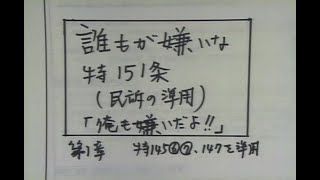 誰もが嫌いな
特151条
(民訴の準用)
「俺も嫌いだよ!!」
第1章 特145⑥⑦、147を準用